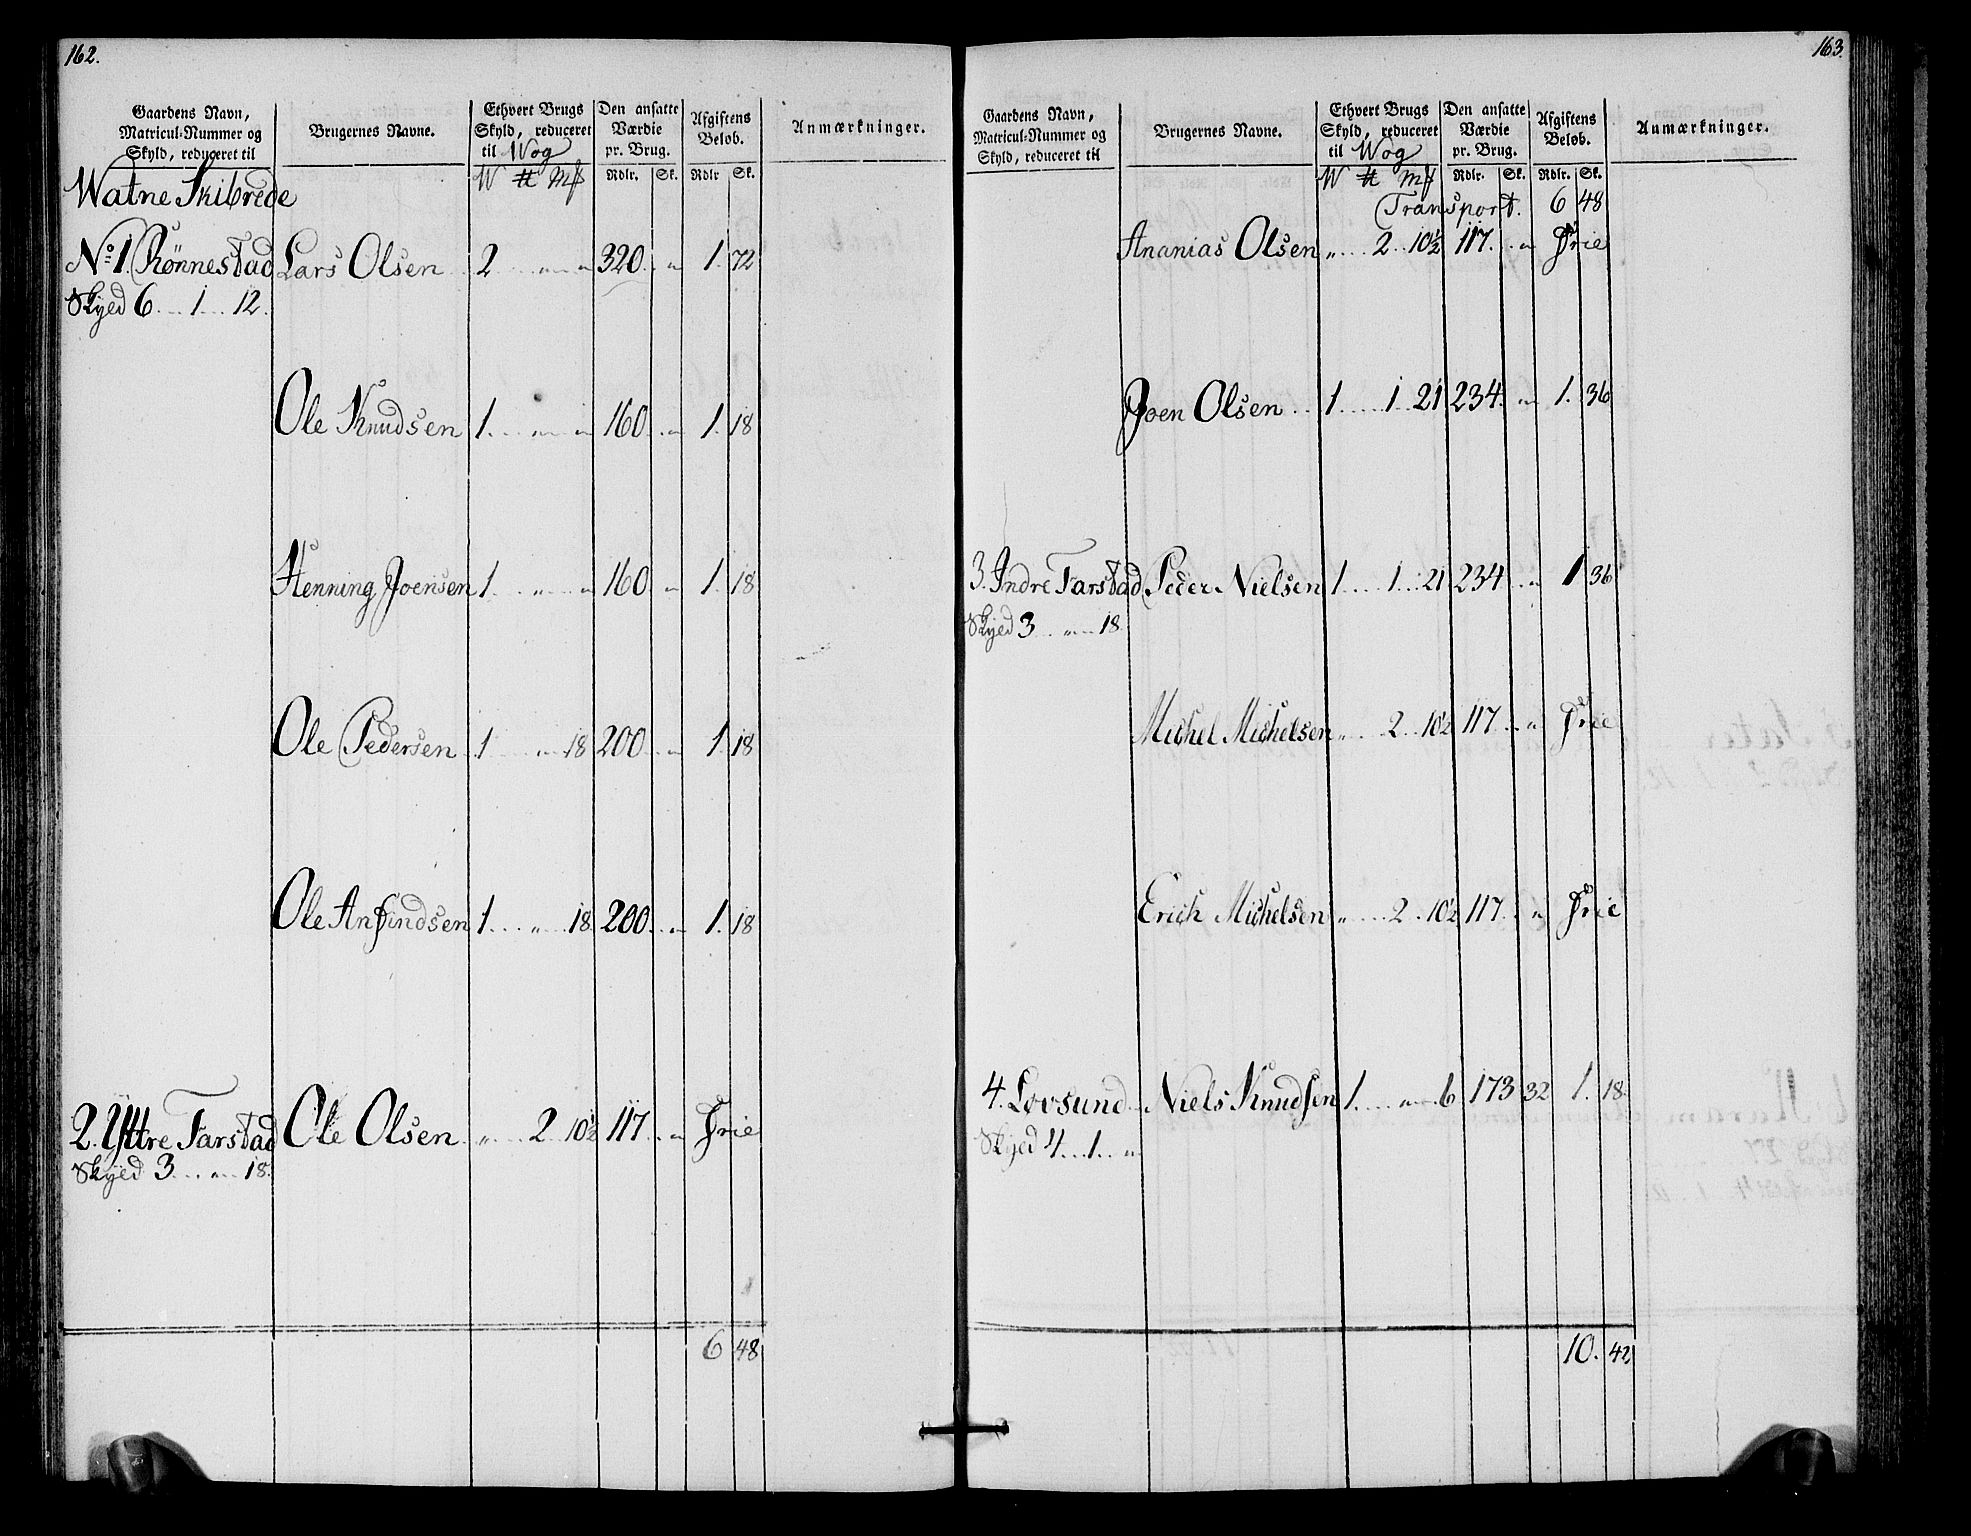 162.
Gaardens Navn, Matricul-Nummer og Skyld, reduceret til
Brugernes Navne.
Ethvert Brugs Skyld, reduceret til Wog
Den ansatte Værdie pr. Brug.
Afgiftens Beløb.
Anmærkninger.
W ℔ Mk Rdlr. Sk. Rdlr Sk.
Watne Skibrede
No 1. Rönnestad Lars Olsen 2 " " 320 " 1. 72
Skyed 6 1 12.
Ole Knudsen 1. " " 160 " 1. 18
Henning Joensen 1 " " 160 " 1. 18
Ole Pedersen 1 " 18 200 " 1. 18
Ole Anfindsen 1 " 18. 200 " 1. 18
2. Yttre Tarstad Ole Olsen " 2 10½ 117 " Frie
Skyed 3 " 18.
6 48
163.
Gaardens Navn, Matricul-Nummer og Skyld, reduceret til
Brugernes Navne.
Ethvert Brugs Skyld, reduceret til Wog
Den ansatte Værdie pr. Brug.
Afgiftens Beløb.
Anmærkninger.
W ℔ Mk Rdlr. Sk. Rdlr. Sk.
Transport. 6 48
Ananias Olsen " 2 10½ 117. " Frie
Joen Olsen 1 1 21 234. " 1. 36
3. Indre Tarstad Peder Nielsen 1 1 21 234 " 1 36
Skyed 3 " 18.
Michel Michelsen " 2 10½ 117 " Frie
Erich Michelsen " 2 10½ 117. " Frie
4. Lovsund Niels Knudsen 1. " 6 173 32 1. 18
Skyed 4 1 "
10. 42